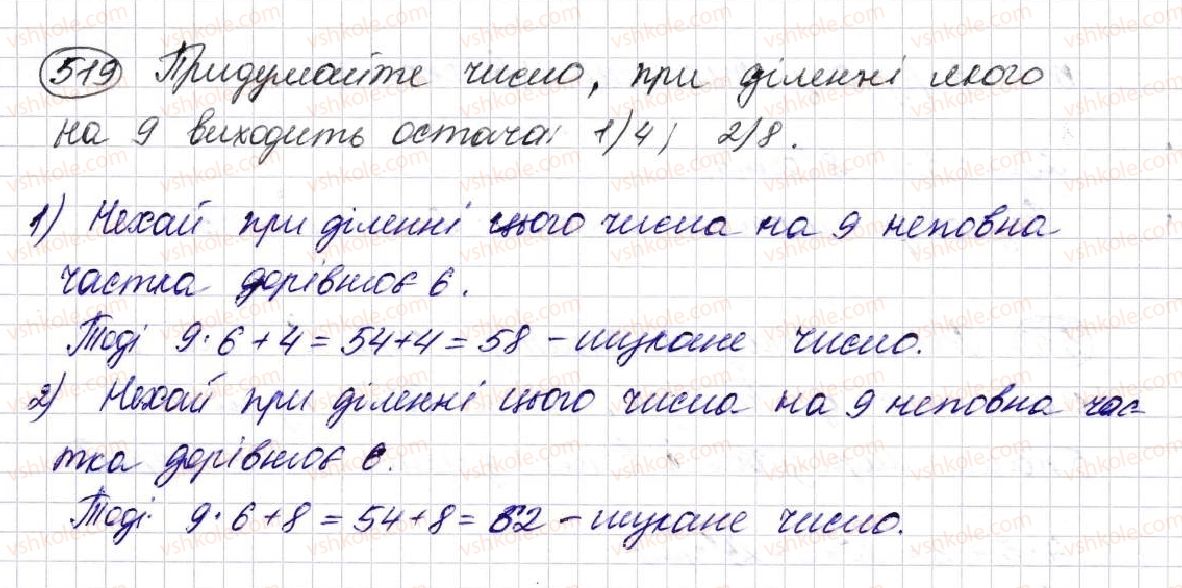 519 Придумайте число, при діленні якого
на 9 виходить остача: 1) 4; 2) 8.
1) Нехай при діленні цього числа на 9 неповна
частка дорівнює 6.
Тоді 9·6+4=54+4=58 – шукане число.
2) Нехай при діленні цього числа на 9 неповна час-
тка дорівнює 6.
Тоді 9·6+8=54+8=62 – шукане число.